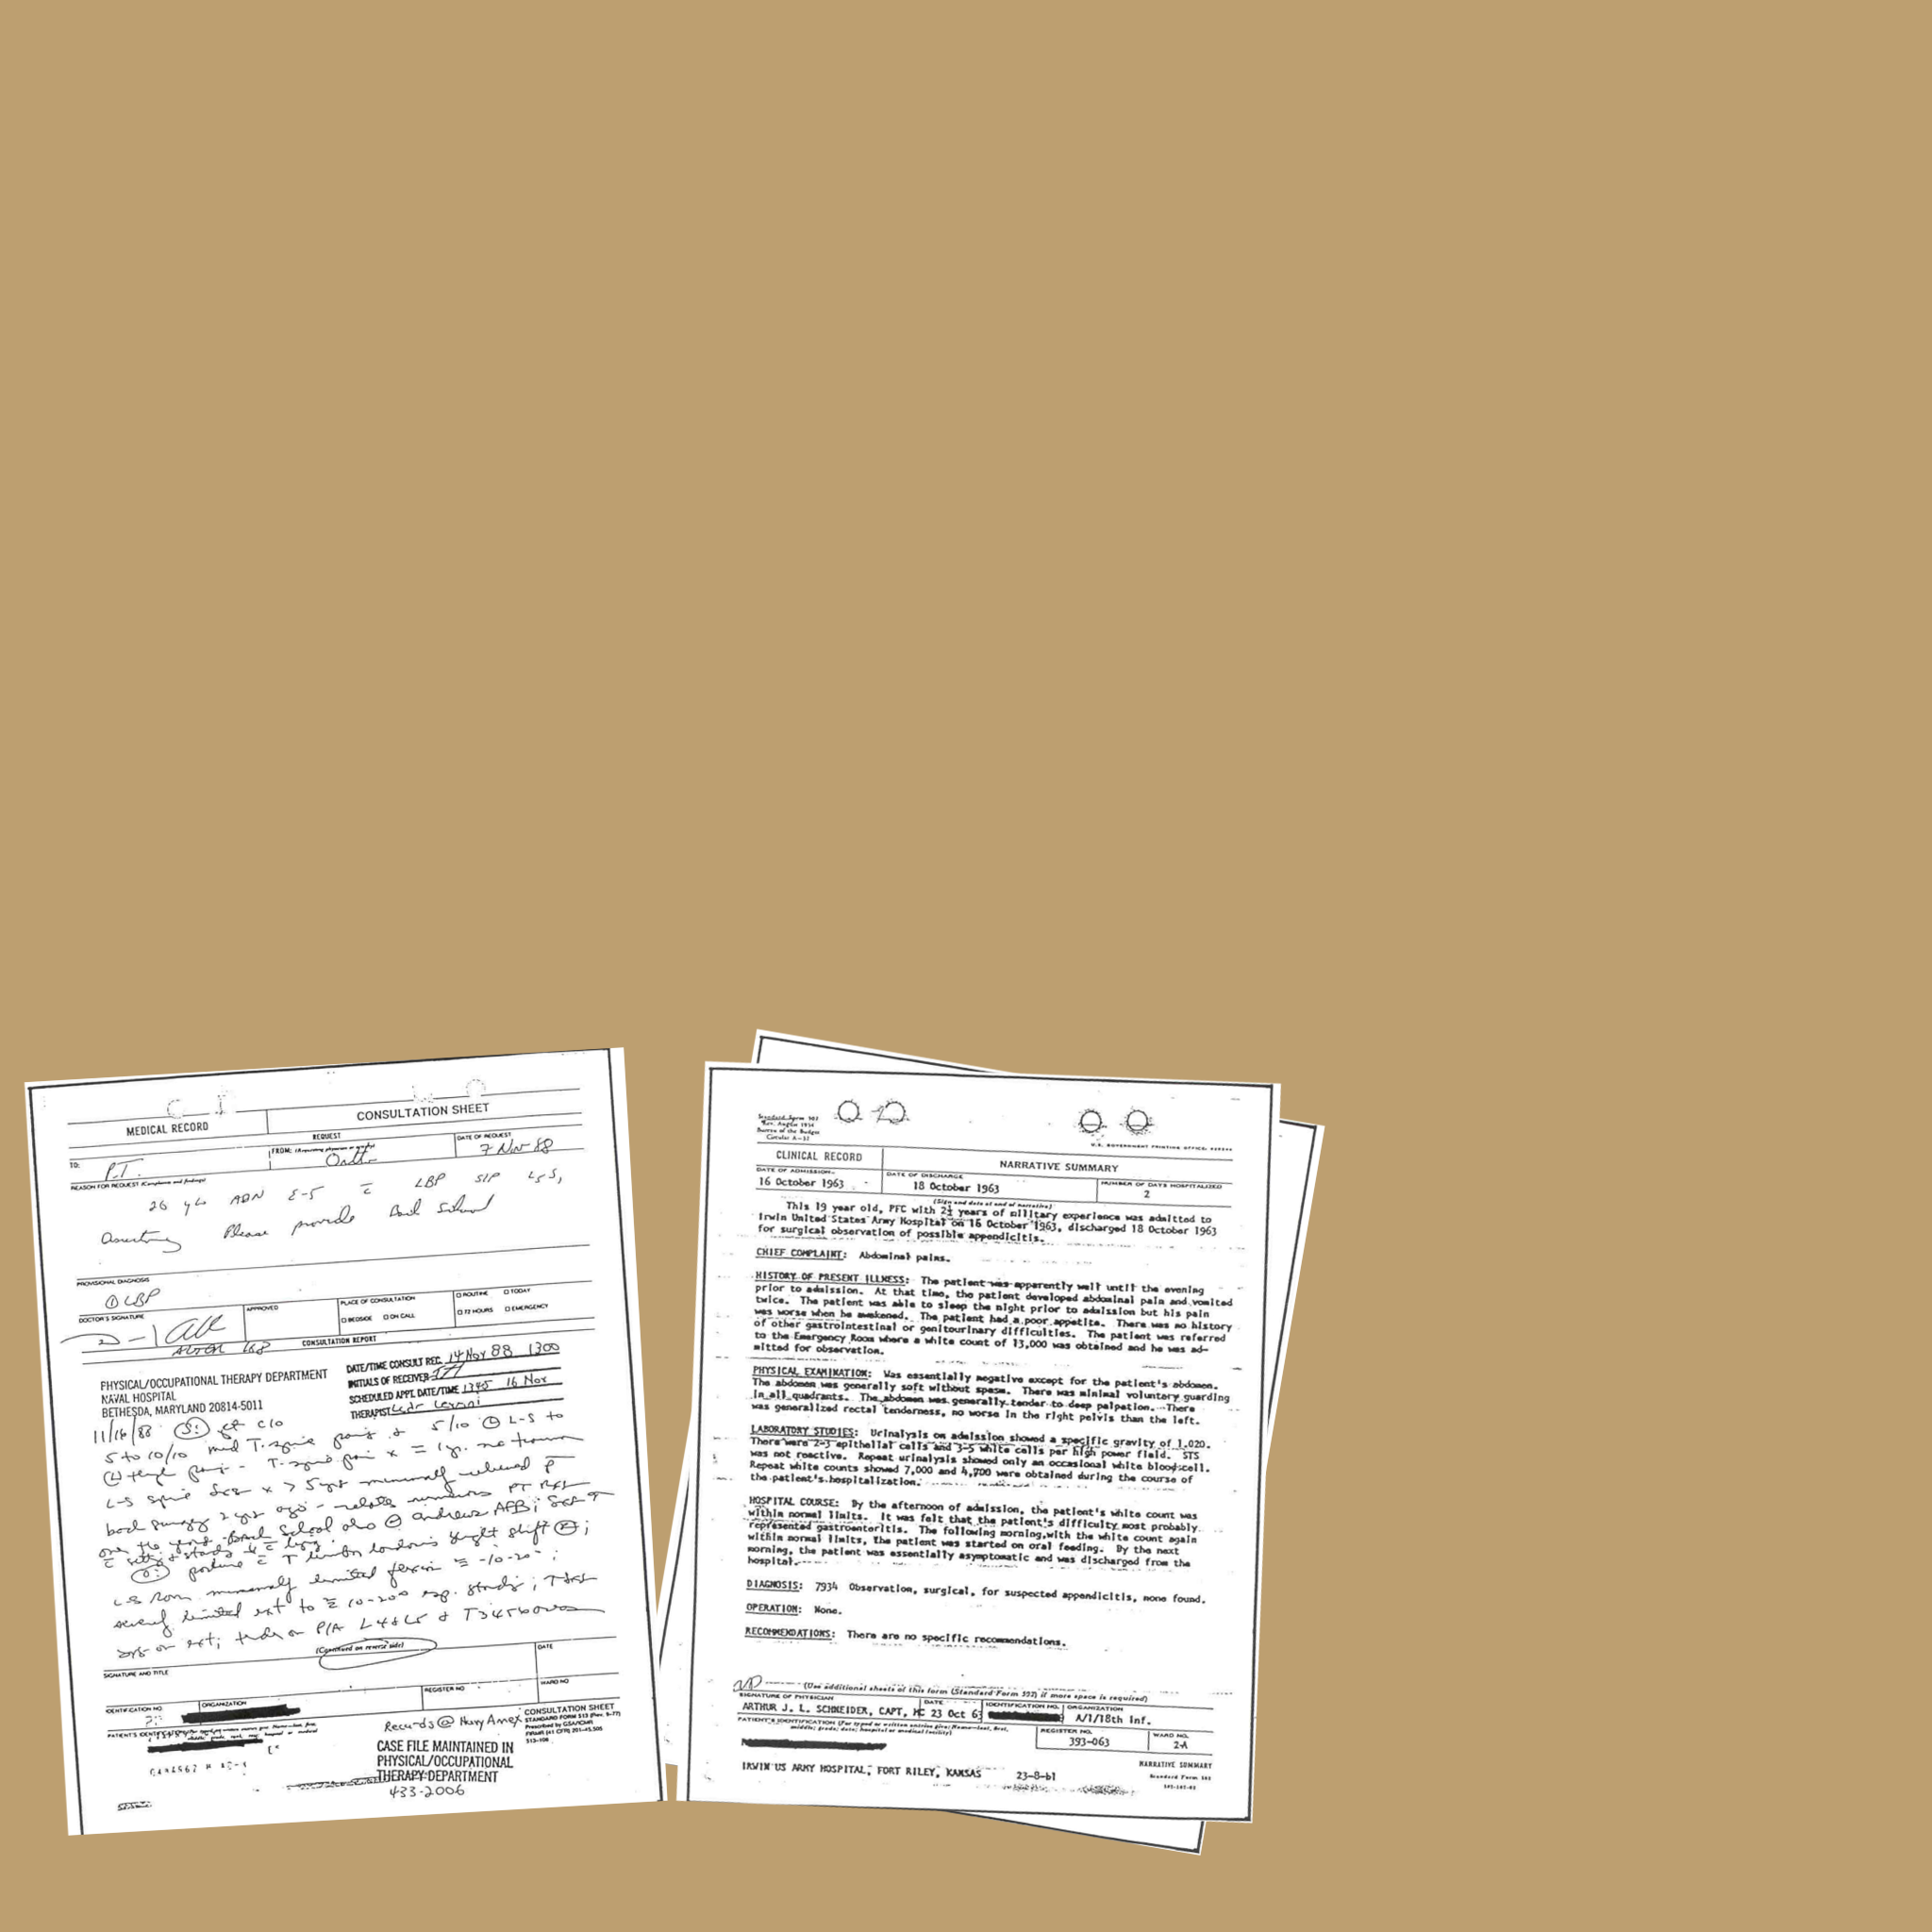 MEDICAL RECORD
CONSULTATION SHEET
REQUEST
TO:
P.T.
FROM: (Requesting physician or activity)
Orth
DATE OF REQUEST
7 Nov 88
REASON FOR REQUEST (Complaints and findings)
26 y/o ADN E-5 c̄ LBP S/P L5S1
Please provide Back School
PROVISIONAL DIAGNOSIS
① LBP
DOCTOR'S SIGNATURE
APPROVED
PLACE OF CONSULTATION
☐ BEDSIDE ☐ ON CALL
☐ ROUTINE ☐ TODAY
☐ 72 HOURS ☐ EMERGENCY
CONSULTATION REPORT
PHYSICAL/OCCUPATIONAL THERAPY DEPARTMENT
NAVAL HOSPITAL
BETHESDA, MARYLAND 20814-5011
DATE/TIME CONSULT REC. 14 Nov 88 1300
INITIALS OF RECEIVER
SCHEDULED APPT. DATE/TIME 1345 16 Nov
THERAPIST
11/16/88 S: pt c/o
5 to 10/10 mid T-spine pain & 5/10 L-S to
(L) thigh pain - T-spine pain x = 1 yr. no trauma
L-S spine x > 5 yrs minimally relieved p̄
back surgery 2 yrs ago - relates numerous PT
over the years - Back School also @ Andrews AFB;
c̄ sitting & standing
O: posture c̄ lumbar lordosis slight shift
L-S ROM minimally limited flexion -10-20°;
severely limited ext to 10-20°
on ext; tender on P/A L4 & L5 & T3456
(Continued on reverse side)
SIGNATURE AND TITLE
DATE
IDENTIFICATION NO
ORGANIZATION
REGISTER NO
WARD NO
Records @ Navy Annex
CONSULTATION SHEET
STANDARD FORM 513 (Rev. 9-77)
Prescribed by GSA/ICMR
FIRMR (41 CFR) 201-45.505
513-108
CASE FILE MAINTAINED IN
PHYSICAL/OCCUPATIONAL
THERAPY DEPARTMENT
433-2006
Standard Form 502
Rev. August 1954
Bureau of the Budget
Circular A-32
U.S. GOVERNMENT PRINTING OFFICE:
CLINICAL RECORD
NARRATIVE SUMMARY
DATE OF ADMISSION
16 October 1963
DATE OF DISCHARGE
18 October 1963
NUMBER OF DAYS HOSPITALIZED
2
(Sign and date at end of narrative)
This 19 year old, PFC with 2½ years of military experience was admitted to
Irwin United States Army Hospital on 16 October 1963, discharged 18 October 1963
for surgical observation of possible appendicitis.
CHIEF COMPLAINT: Abdominal pains.
HISTORY OF PRESENT ILLNESS: The patient was apparently well until the evening
prior to admission. At that time, the patient developed abdominal pain and vomited
twice. The patient was able to sleep the night prior to admission but his pain
was worse when he awakened. The patient had a poor appetite. There was no history
of other gastrointestinal or genitourinary difficulties. The patient was referred
to the Emergency Room where a white count of 13,000 was obtained and he was ad-
mitted for observation.
PHYSICAL EXAMINATION: Was essentially negative except for the patient's abdomen.
The abdomen was generally soft without spasm. There was minimal voluntary guarding
in all quadrants. The abdomen was generally tender to deep palpation. There
was generalized rectal tenderness, no worse in the right pelvis than the left.
LABORATORY STUDIES: Urinalysis on admission showed a specific gravity of 1.020.
There were 2-3 epithelial cells and 3-5 white cells per high power field. STS
was not reactive. Repeat urinalysis showed only an occasional white blood cell.
Repeat white counts showed 7,000 and 4,700 were obtained during the course of
the patient's hospitalization.
HOSPITAL COURSE: By the afternoon of admission, the patient's white count was
within normal limits. It was felt that the patient's difficulty most probably
represented gastroenteritis. The following morning, with the white count again
within normal limits, the patient was started on oral feeding. By the next
morning, the patient was essentially asymptomatic and was discharged from the
hospital.
DIAGNOSIS: 7934 Observation, surgical, for suspected appendicitis, none found.
OPERATION: None.
RECOMMENDATIONS: There are no specific recommendations.
(Use additional sheets of this form (Standard Form 502) if more space is required)
SIGNATURE OF PHYSICIAN
ARTHUR J. L. SCHNEIDER, CAPT, MC
DATE
23 Oct 63
IDENTIFICATION NO.
ORGANIZATION
A/1/18th Inf.
PATIENT'S IDENTIFICATION (For typed or written entries give: Name—last, first,
middle; grade; date; hospital or medical facility)
REGISTER NO.
393-063
WARD NO.
2-A
IRWIN US ARMY HOSPITAL, FORT RILEY, KANSAS
23-8-61
NARRATIVE SUMMARY
Standard Form 502